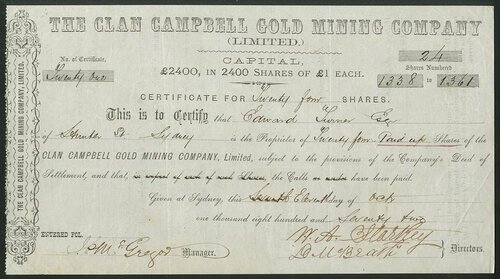 THE CLAN CAMPBELL GOLD MINING COMPANY
(LIMITED.)
CAPITAL,
£2400, IN 2400 SHARES OF £1 EACH.
No. of Certificate,
Twenty two
24
Shares Numbered
1338 to 1361
CERTIFICATE FOR Twenty four SHARES.
This is to Certify that Edward Turner Esq
of Hunter St Sydney is the Proprietor of Twenty four Paid up Shares of the
CLAN CAMPBELL GOLD MINING COMPANY, Limited, subject to the provisions of the Company's Deed of
Settlement, and that in respect of each such Shares, the Calls have been paid.
Given at Sydney, this Eleventh day of Octr
one thousand eight hundred and seventy two
ENTERED FOL.
McGregor Manager.
W. A. Starkey
D. McBeath
Directors.
THE CLAN CAMPBELL GOLD MINING COMPANY, LIMITED.